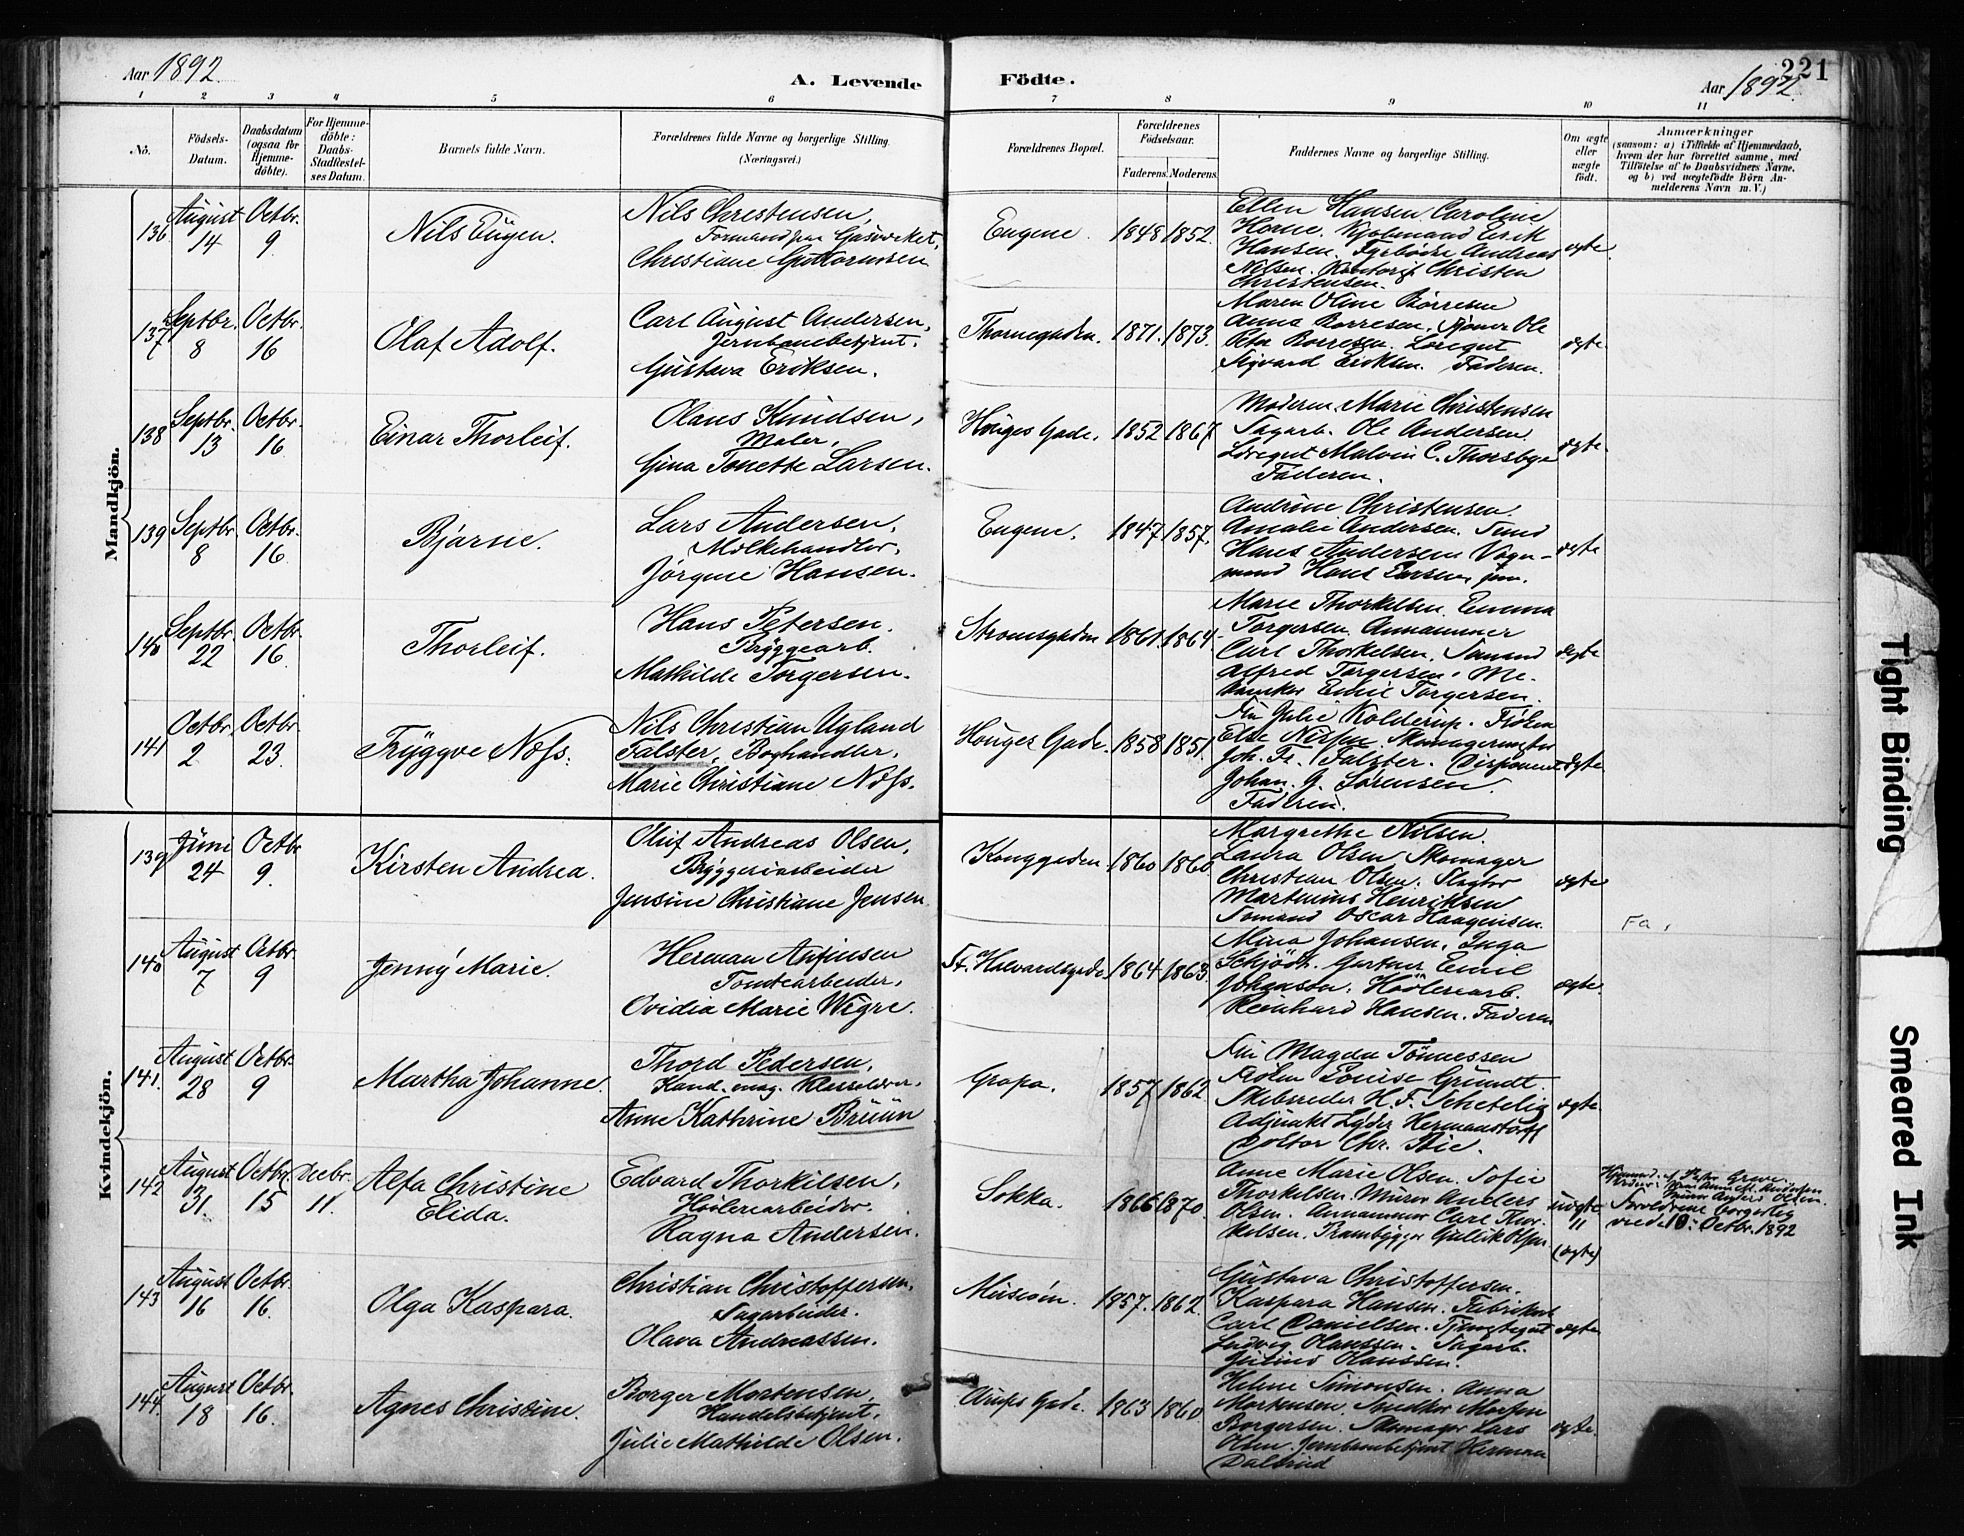 Aar 1892. A. Levende Födte. Aar 1892. 221
1 2 3 4 5 6 7 8 9 10 11
No. Födsels-Datum. Daabsdatum (ogsaa for Hjemme-döbte). For Hjemme-döbte: Daabs-Stadfæstel-ses Datum. Barnets fulde Navn. Forældrenes fulde Navne og borgerlige Stilling. (Næringsvei.) Forældrenes Bopæl. Forældrenes Födselsaar. Faderens. Moderens. Faddernes Navne og borgerlige Stilling. Om ægte eller uægte födt. Anmærkninger (saasom: a) i Tilfælde af Hjemmedaab, hvem der har forrettet samme, med Tilföielse af to Daabsvidners Navne, og b) ved uægtefödte Börn An-melderens Navn m. V.)
Mandkjön.
136 August 14 Octbr. 9 Nils Eugen. Nils Christensen, Formand paa Gasværket, Christiane Guttormsen Eugene. 1848 1852.
Ellen Hansen. Caroline
Horne. Kjøbmand Erik
Hansen. Fyrbøder Andreas
Nilsen. Christen
Christensen.
ægte.
137 Septbr. 8 Octbr. 16 Olaf Adolf. Carl August Andersen, Jernbanebetjent. Gustava Eriksen. Thornegaden. 1871. 1873.
Maren Oline Børresen
Anna Børresen. Ole
Peter Børresen. Løregut
Sigvard Eriksen. Faderen.
ægte.
138 Septbr. 13 Octbr. 16 Einar Thorleif. Olaus Knudsen, Maler, Gina Tonette Larsen. Hauges Gade. 1852 1867
Moderen. Marie Christensen
Sagarb. Ole Andersen
Løregut Malvin C. Thorsbye
Faderen.
ægte.
139 Septbr. 8 Octbr. 16 Bjarne. Lars Andersen, Melkehandler, Jørgine Hansen. Eugene. 1847 1857.
Andrine Christensen.
Amalie Andersen.
Hans Andersen Vogn-
mand Hans Larsen jun.
ægte
140 Septbr. 22 Octbr. 16. Thorleif. Hans Petersen. Bryggearb. Mathilde Torgersen. Strømsgaden 1861. 1864
Marie Thorkelsen. Emma
Torgersen. Annammer
Carl Thorkelsen. Sømand
Alfred Torgersen. Me-
kaniker Emil Torgersen.
ægte
141 Octbr. 2 Octbr. 23. Tryggve Nøss. Nils Christian Ugland Falster, Boghandler, Marie Christiane Nøss. Hauges Gade. 1858 1851.
Fru Julie Kolderup. Frøken
Else Nissen. Skomagermester
Joh. Fr. Falster. Disponent
Johan. G. Sørensen.
Faderen.
ægte
Kvindekjön.
139 Juni 24 Octbr 9. Kirsten Andrea. Oluf Andreas Olsen. Bryggeriarbeider Jensine Christiane Jensen Konggaden. 1860 1860
Margrethe Nilsen.
Laura Olsen. Skomager
Christian Olsen. Slagter
Martinius Henriksen
Sømand Oscar Haagensen.
ægte Fa.
140 August 7 Octbr. 9 Jenny Marie. Herman Anfinsen Tomtearbeider, Ovidia Marie Wegre. St. Halvardsgade 1864 1863.
Mina Johansen. Inga
Schjødt. Gartner Emil
Johansen. Høvleriarb.
Reinhard Hansen. Faderen
ægte.
141. August 28 Octbr. 9 Martha Johanne. Thord Pedersen, Kand. mag. Anne Kathrine Bruun Grøpa. 1857 1862.
Fru Magda Tønnessen
Frøken Louise Grundt.
Skibsreder H. F. Schetelig
Adjunkt Lyder Hermanstorff
Doktor Chr. Bie.
ægte.
142 August 31. Octbr. 15 Decbr. 11. Alfa Christine Elida. Edvard Thorkilsen, Høvleriarbeider. Ragna Andersen. Sokka. 1866 1870.
Anne Marie Olsen. Sofie
Thorkelsen. Murer Anders
Olsen. Annammer Carl Thor-
kelsen. Brambygger Gullik Olsen
uægte
"
(ægte)
Anders Olsen.
Forældrene borgerlig
viede 10. Octbr. 1892
143 August 16 Octbr. 16. Olga Kaspara. Christian Christoffersen. Sagarbeider. Olava Andreassen. Museøen. 1857. 1862.
Gustava Christoffersen.
Kaspara Hansen. Fabrikarb
Carl Danielsen. Tjenstegut
Ludvig Olaussen. Sagarb.
Julius Olaussen.
ægte
144. August 18 Octbr. 16. Agnes Christine. Borger Mortensen. Handelsbetjent. Julie Mathilde Olsen. Arups Gade. 1863 1860
Helene Simonsen. Anna
Mortensen. Snedker Morten
Borgersen. Skomager Lars
Olsen. Jernbanebetjent Herman
Dalsrud
ægte.
Tight Binding
Smeared Ink